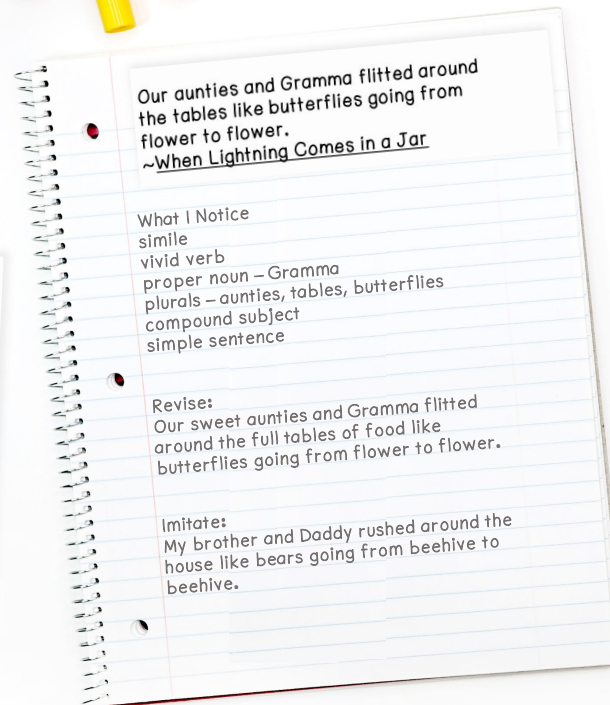 Our aunties and Gramma flitted around
the tables like butterflies going from
flower to flower.
~When Lightning Comes in a Jar
What I Notice
simile
vivid verb
proper noun – Gramma
plurals – aunties, tables, butterflies
compound subject
simple sentence
Revise:
Our sweet aunties and Gramma flitted
around the full tables of food like
butterflies going from flower to flower.
Imitate:
My brother and Daddy rushed around the
house like bears going from beehive to
beehive.